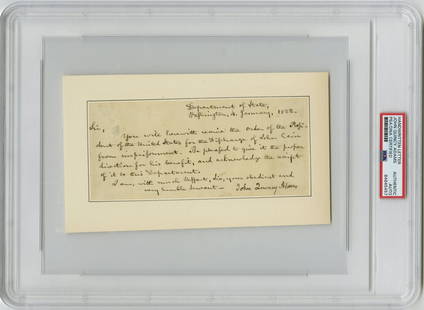 Department of State,
Washington, 4. January, 1822.
Sir,
You will herewith receive the Order of the Presi-
dent of the United States for the Discharge of John Cain
from imprisonment. Be pleased to give it the proper
direction for his benefit, and acknowledge the receipt
of it to this Department.
I am, with much Respect, Sir, your obedient and
very humble Servant – John Quincy Adams
HANDWRITTEN LETTER
JOHN QUINCY ADAMS
AUTHENTIC
AUTO
PSA/DNA CERTIFIED